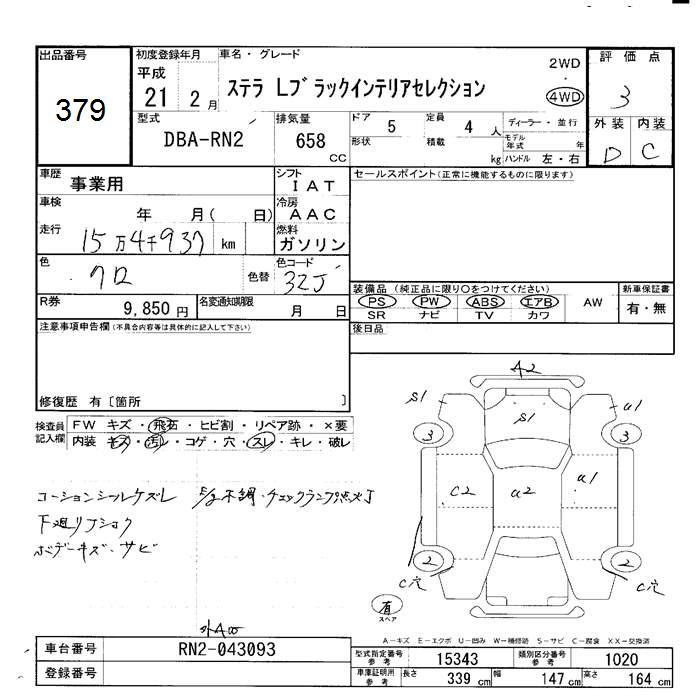 出品番号
379
初度登録年月
平成
21 2月
車名・グレード
ステラ Lブラックインテリアセレクション
2WD
4WD
評価点
3
外装 内装
D C
型式
DBA-RN2
排気量
658
CC
ドア
5
形状
定員
4 人
積載
kg
ディーラー・並行
モデル年式 年
ハンドル 左・右
車歴
事業用
シフト
IAT
車検
年 月( 日)
冷房
AAC
走行
15万4千937 km
燃料
ガソリン
色
クロ
色替
色コード
32J
R券
9,850円
名変通知期限
月 日
セールスポイント(正常に機能するものに限ります)
装備品(純正品に限り○をつけてください)
PS PW ABS エアB AW
SR ナビ TV カワ
新車保証書
有・無
後日品
注意事項申告欄(不具合内容等は具体的に記入して下さい)
修復歴 有〔箇所 〕
検査員記入欄
FW キズ・飛石・ヒビ割・リペア跡・×要
内装 キズ・汚レ・コゲ・穴・スレ・キレ・破レ
コーションシールケズレ
不調・チェックランプ点灯
下廻りフショク
ボデーキズ・サビ
A2
S1
S1
u1
3
3
C2
u2
a1
2
2
C穴
C穴
有
スペア
A-キズ E-エクボ U-凹み W-補修跡 S-サビ C-腐食 XX-交換済
車台番号
RN2-043093
登録番号
型式指定番号 参考
15343
類別区分番号 参考
1020
車庫証明用 参考
長さ 339 cm 幅 147 cm 高さ 164 cm